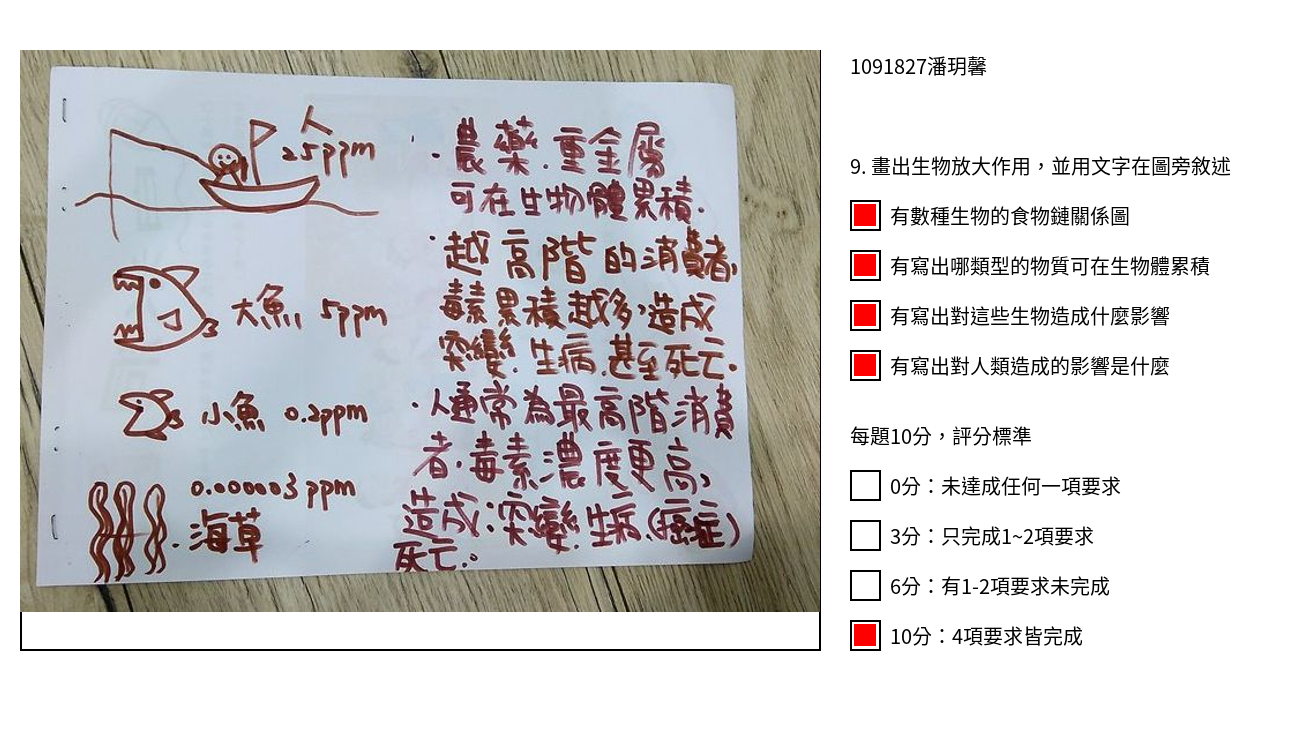 人
25ppm
大魚 5ppm
小魚 0.2ppm
0.000003ppm
海草
·農藥.重金屬
可在生物體累積.
·越高階的消費者,
毒素累積越多,造成
突變.生病.甚至死亡.
·人通常為最高階消費
者.毒素濃度更高,
造成:突變.生病.(癌症)
死亡.
1091827潘玥馨
9. 畫出生物放大作用，並用文字在圖旁敘述
有數種生物的食物鏈關係圖
有寫出哪類型的物質可在生物體累積
有寫出對這些生物造成什麼影響
有寫出對人類造成的影響是什麼
每題10分，評分標準
0分：未達成任何一項要求
3分：只完成1~2項要求
6分：有1-2項要求未完成
10分：4項要求皆完成